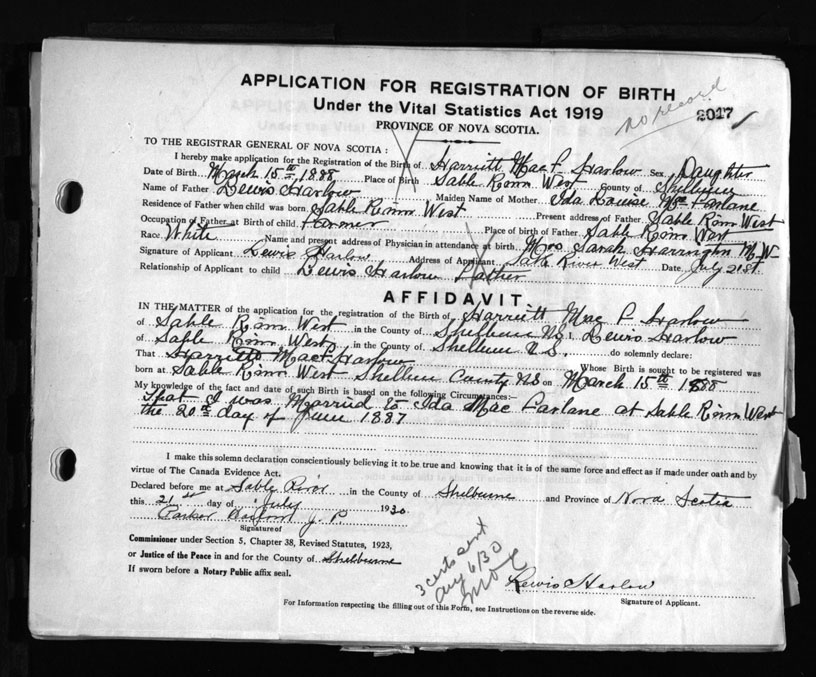 APPLICATION FOR REGISTRATION OF BIRTH
no record
Under the Vital Statistics Act 1919
2017
PROVINCE OF NOVA SCOTIA.
TO THE REGISTRAR GENERAL OF NOVA SCOTIA:
I hereby make application for the Registration of the Birth of Harriett Mac F Harlow Sex Daughter
Date of Birth March 15th 1888 Place of Birth Sable River West County of Shelburne
Name of Father Lewis Harlow Maiden Name of Mother Ida Louise MacFarlane
Residence of Father when child was born Sable River West Present address of Father Sable River West
Occupation of Father at Birth of child Farmer Place of birth of Father Sable River West
Race White Name and present address of Physician in attendance at birth Mrs Sarah Harrington M W
Signature of Applicant Lewis Harlow Address of Applicant Sable River West Date July 21st
Relationship of Applicant to child Lewis Harlow Father
AFFIDAVIT
IN THE MATTER of the application for the registration of the Birth of Harriett Mac F Harlow
of Sable River West in the County of Shelburne NS I, Lewis Harlow
of Sable River West in the County of Shelburne N.S. do solemnly declare:
That Harriett MacF Harlow Whose Birth is sought to be registered was
born at Sable River West Shelburne County NS on March 15th 1888
My knowledge of the fact and date of such Birth is based on the following Circumstances:—
That I was Married to Ida MacFarlane at Sable River West
the 20th day of June 1887
I make this solemn declaration conscientiously believing it to be true and knowing that it is of the same force and effect as if made under oath and by
virtue of The Canada Evidence Act.
Declared before me at Sable River in the County of Shelburne and Province of Nova Scotia
this 21st day of July 1930
Parker J. P.
Signature of
Commissioner under Section 5, Chapter 38, Revised Statutes, 1923,
or Justice of the Peace in and for the County of Shelburne
If sworn before a Notary Public affix seal.
3 certs sent
Aug 6/30
Lewis Harlow
Signature of Applicant.
For Information respecting the filling out of this Form, see Instructions on the reverse side.